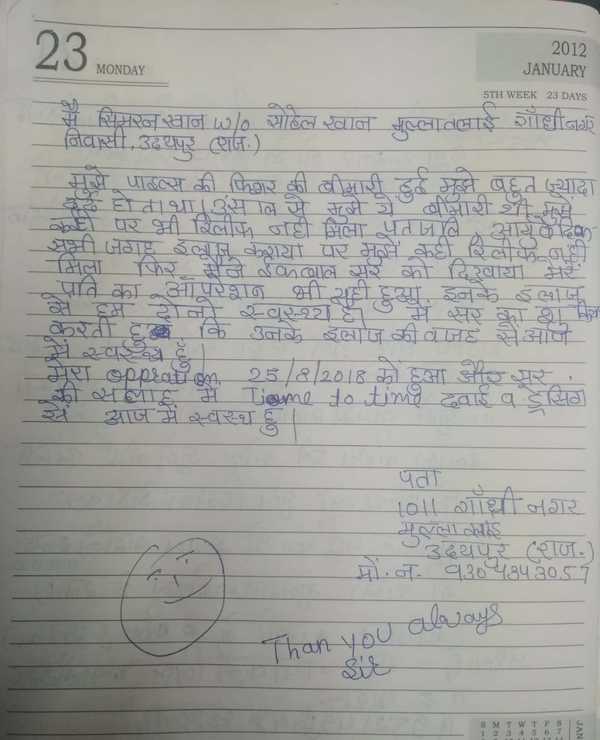 23 MONDAY
2012
JANUARY
5TH WEEK 23 DAYS
मै सिमरन खान w/o सोहेल खान मुल्लातलाई गाँधीनगर
निवासी, उदयपुर (राज.)
मुझे पाइल्स की फिशर की बीमारी हुई मुझे बहुत ज्यादा
दर्द होता था। साल से मुझे ये बीमारी थी मुझे
कही पर भी रिलीफ नही मिला पतांजलि आयुर्वेदिक
सभी जगह इलाज कराया पर मुझे कही रिलीफ नही
मिला फिर मैने ईकबाल सर को दिखाया मेरे
पति का ऑपरेशन भी यही हुआ इनके इलाज
से हम दोनो स्वस्थ्य है। मै सर का
करती हु कि उनके इलाज की वजह से आज
में स्वस्थ्य हुँ।
मेरा oppration 25/8/2018 को हुआ और सर
की सलाह में Tiame to time दवाई व ड्रेसिंग
से आज में स्वस्थ हु।
पता
1011 गाँधी नगर
मुल्लातलाई
उदयपुर (राज.)
मों. न. 9304343057
Than you always
Sir
S M T W T F S
JAN